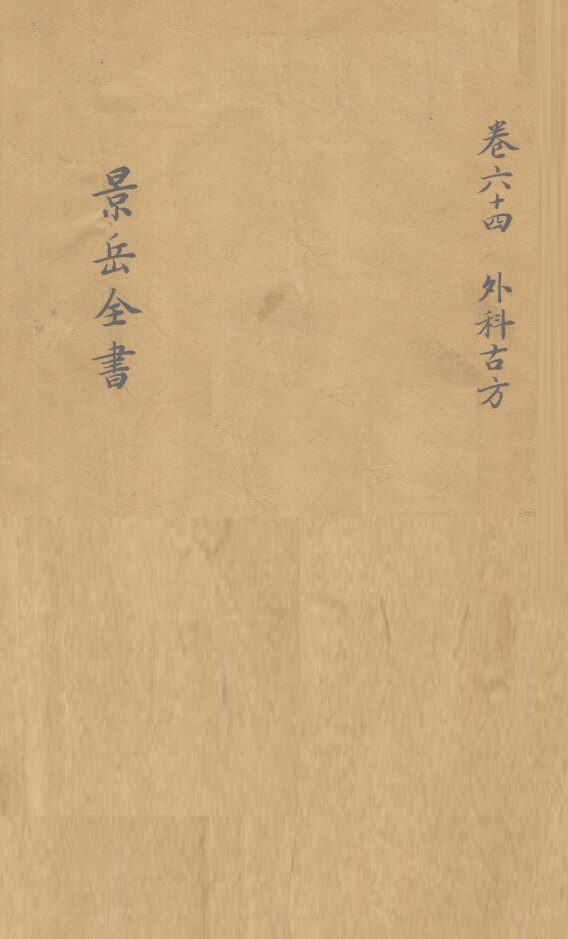 卷六十四 外科古方
景岳全書